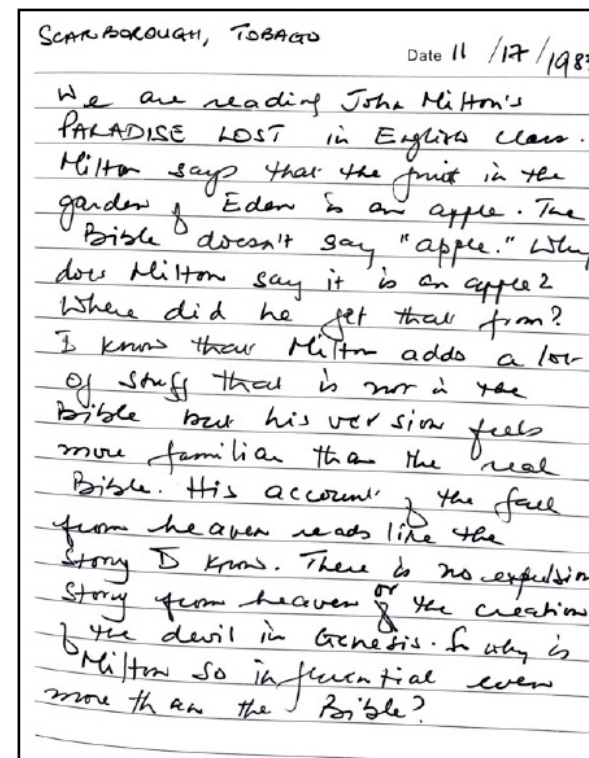 SCARBOROUGH, TOBAGO
Date 11/17/198
We are reading John Milton's
PARADISE LOST in English class.
Milton says that the fruit in the
garden of Eden is an apple. The
Bible doesn't say "apple." Why
does Milton say it is an apple?
Where did he get that from?
I know that Milton adds a lot
of stuff that is not in the
Bible but his version feels
more familiar than the real
Bible. His account of the fall
from heaven reads like the
Story I know. There is no expulsion
Story from heaven or of the creation
of the devil in Genesis. So why is
Milton so influential even
more than the Bible?